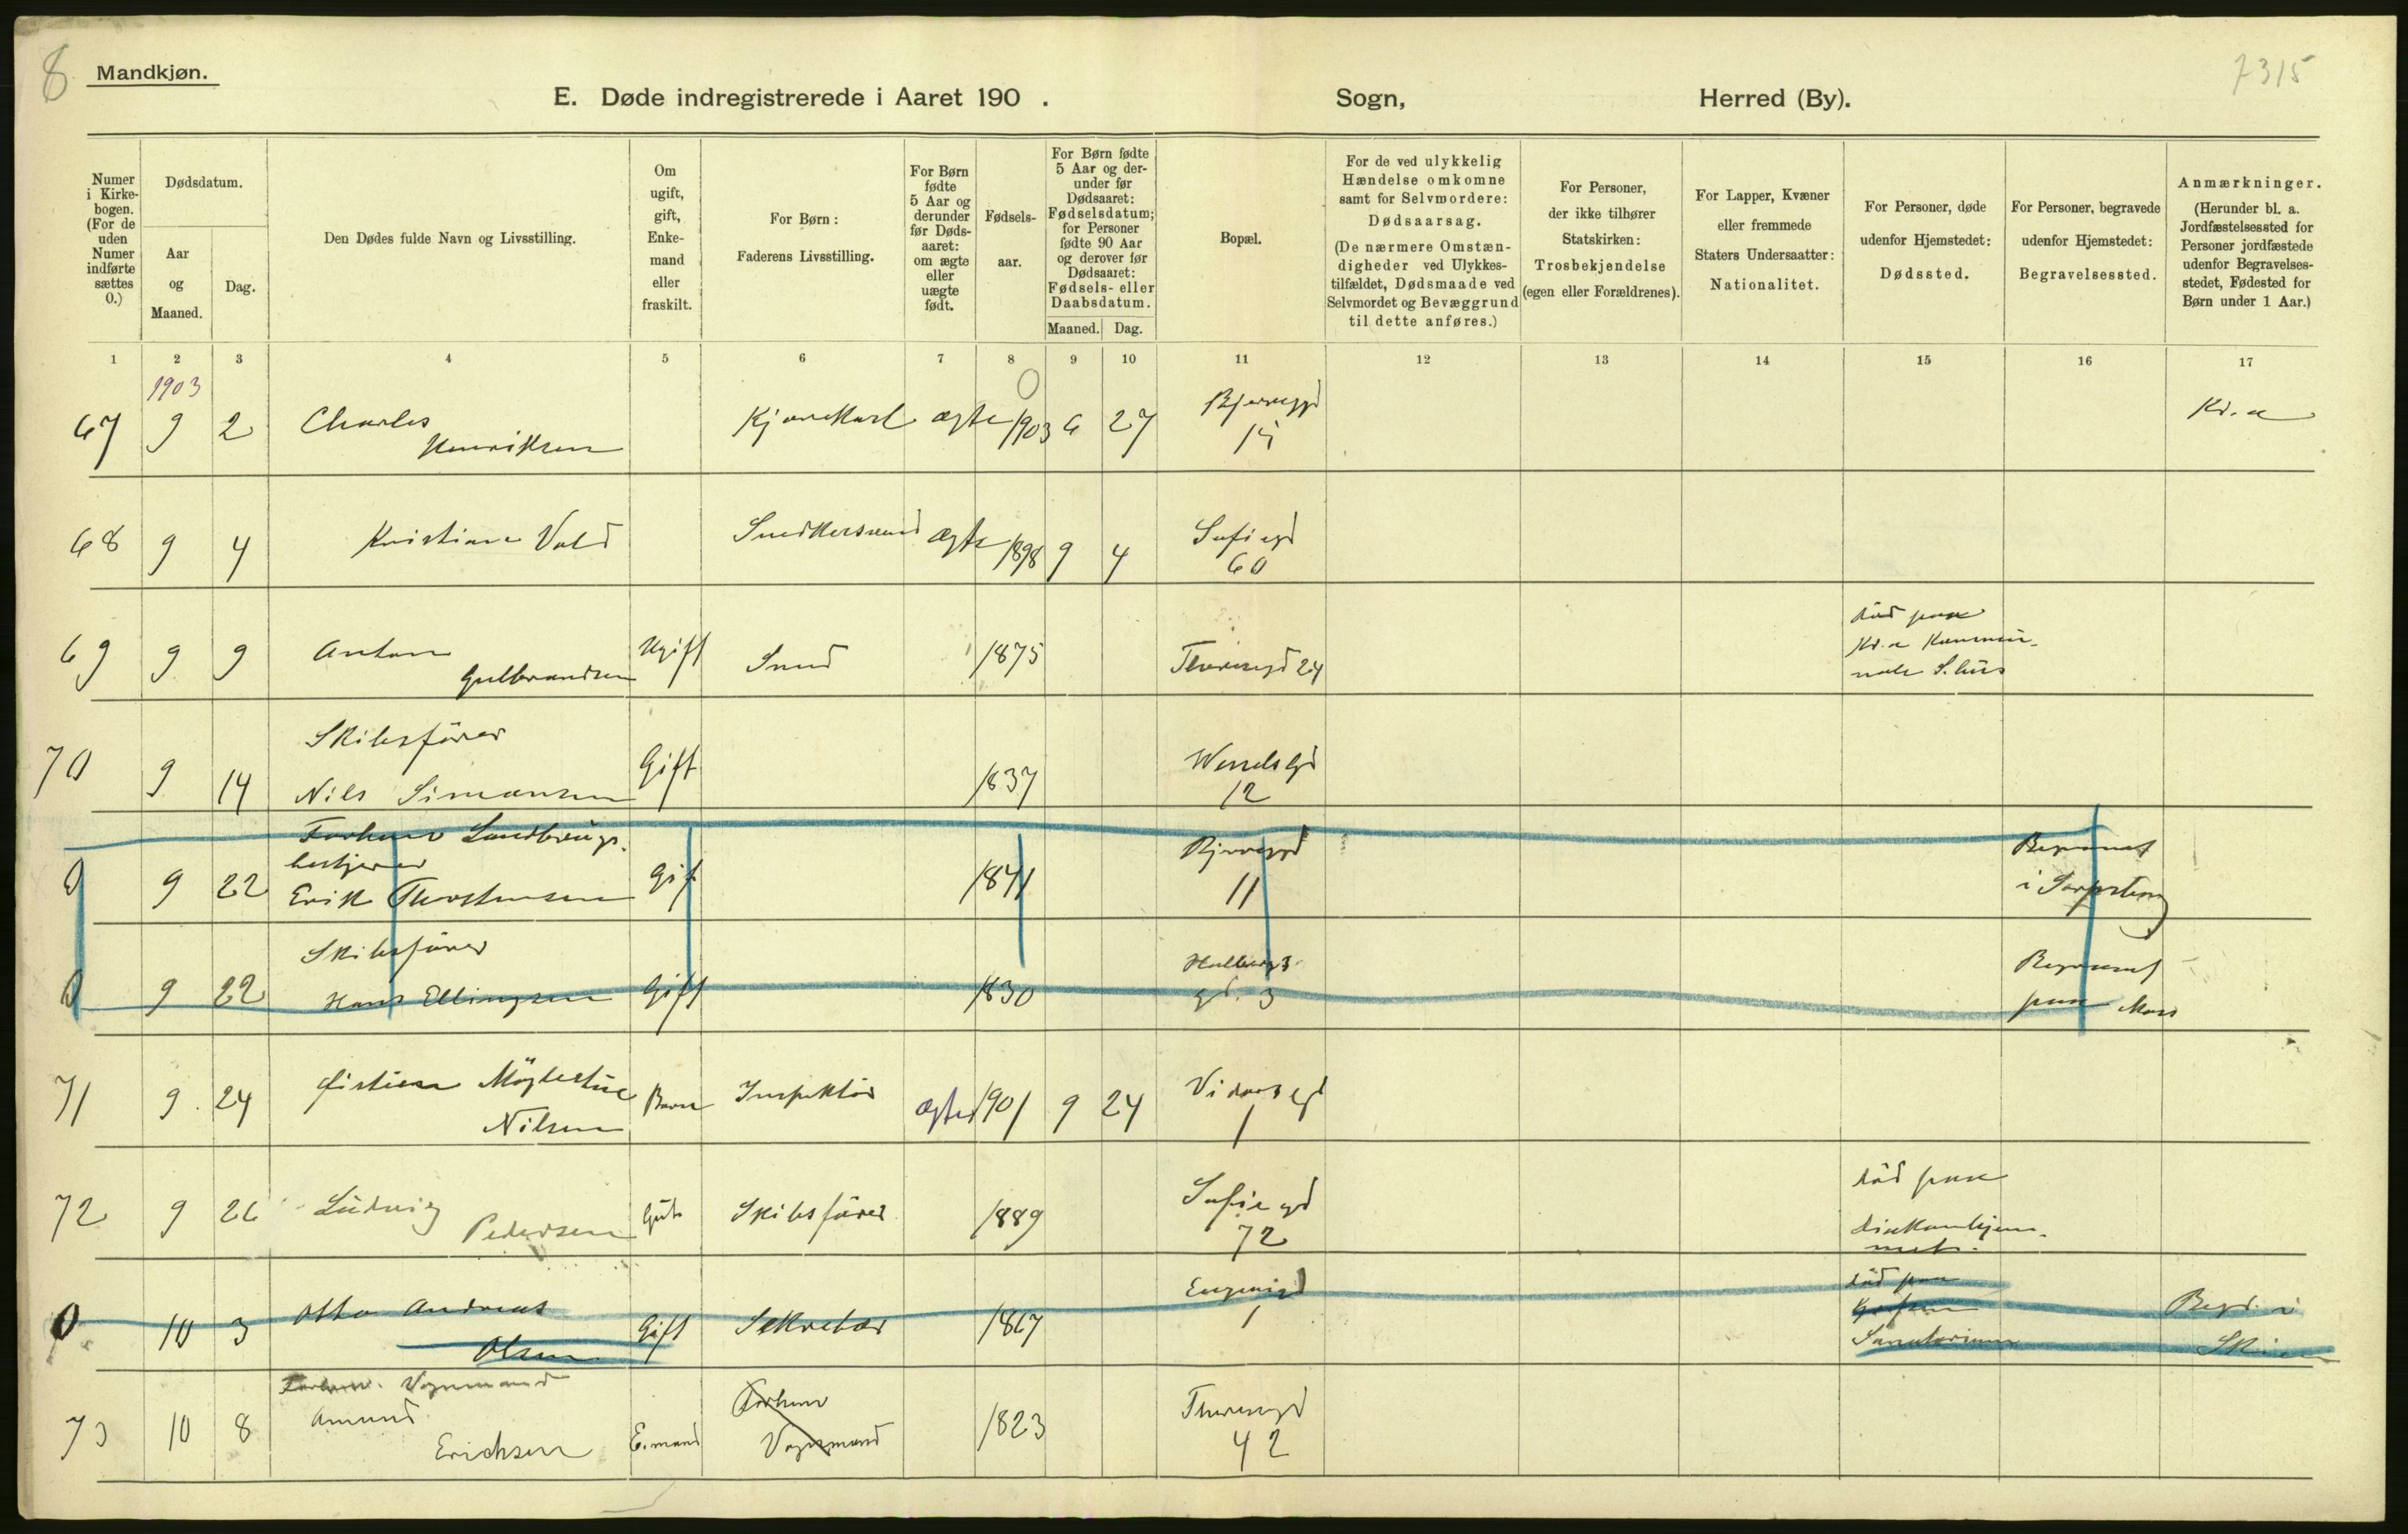 8
Mandkjøn.
7315
E. Døde indregistrerede i Aaret 190 . Sogn, Herred (By).
Numer i Kirkebogen. (For de uden Numer indførte sættes 0.)
Dødsdatum.
Aar og Maaned.
Dag.
Den Dødes fulde Navn og Livsstilling.
Om ugift, gift, Enkemand eller fraskilt.
For Børn: Faderens Livsstilling.
For Børn fødte 5 Aar og derunder før Dødsaaret: om ægte eller uægte født.
Fødselsaar.
For Børn fødte 5 Aar og derunder før Dødsaaret: Fødselsdatum; for Personer fødte 90 Aar og derover før Dødsaaret: Fødsels- eller Daabsdatum.
Maaned. Dag.
Bopæl.
For de ved ulykkelig Hændelse omkomne samt for Selvmordere: Dødsaarsag. (De nærmere Omstændigheder ved Ulykkestilfældet, Dødsmaade ved Selvmordet og Bevæggrund til dette anføres.)
For Personer, der ikke tilhører Statskirken: Trosbekjendelse (egen eller Forældrenes).
For Lapper, Kvæner eller fremmede Staters Undersaatter: Nationalitet.
For Personer, døde udenfor Hjemstedet: Dødssted.
For Personer, begravede udenfor Hjemstedet: Begravelsessted.
Anmærkninger. (Herunder bl. a. Jordfæstelsessted for Personer jordfæstede udenfor Begravelsesstedet, Fødested for Børn under 1 Aar.)
1 2 3 4 5 6 7 8 9 10 11 12 13 14 15 16 17
1903
67 9 2 Charles Henriksen Kjørekarl ægte 1903 6 27 Bjerregd Kr.a
68 9 4 Kristian Vold Snedkersvend ægte 1898 9 4 Sofiegd 60
69 9 9 Anton Gulbrandsen Ugift Smed 1875 Theresegd 24 död paa Kr.a Kommunale S.hus
70 9 14 Skibsförer Nils Simonsen Gift 1837 Wesselsgd 12
0 9 22 Forhenv Landbrugsbestyrer Erik Thorstensen Gift 1841 Bjerregd 11 Begravet i Sarpsborg
0 9 22 Skibsförer Hans Ellingsen Gift 1830 Holbergsgd. 3 Begravet paa Moss
71 9 24 Möglestue Nilsen Barn Inspektör ægte 1901 9 24 Vidarsgd 1
72 9 26 Ludvig Pedersen Gut Skibsförer 1889 Sofiegd 72 död paa Diakonhjemmet.
0 10 3 Otto Andreas Olsen Gift Sekretær 1867 Eugenigd 1 död paa Grefsen Sanatorium Begr. i Skien
73 10 8 Forhenv. Vognmand Amund Erichsen E.mand Forhenv Vognmand 1823 Theresegd 42